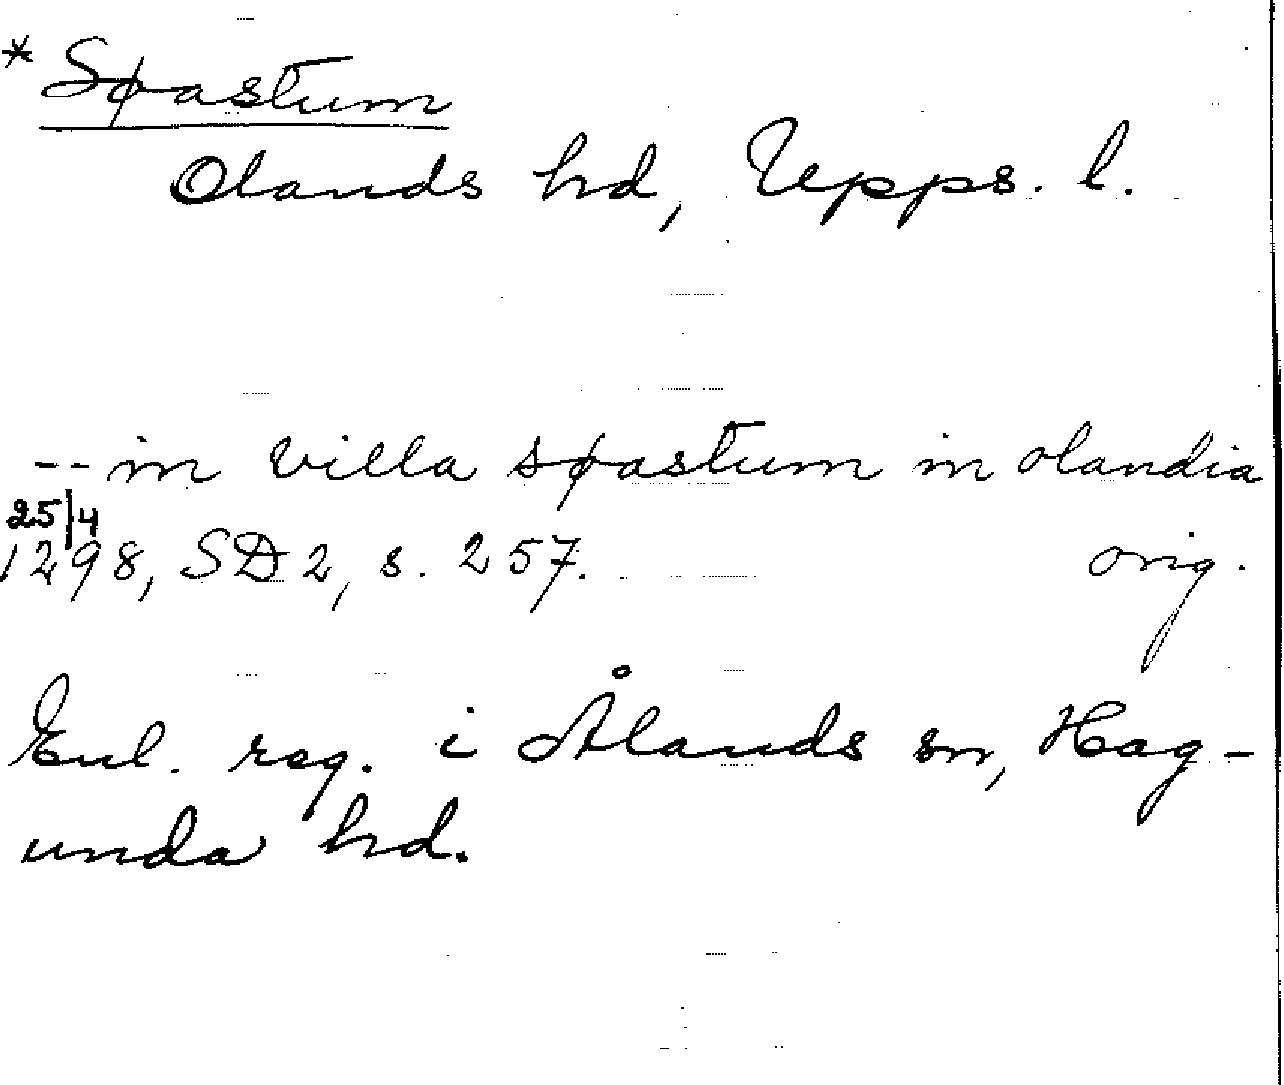 * Søastum
Olands hd, Upps. l.
-- in villa søastum in olandia
25/4
1298, SD 2, s. 257. orig.
Enl. reg. i Ålands sn, Hag-
unda hd.